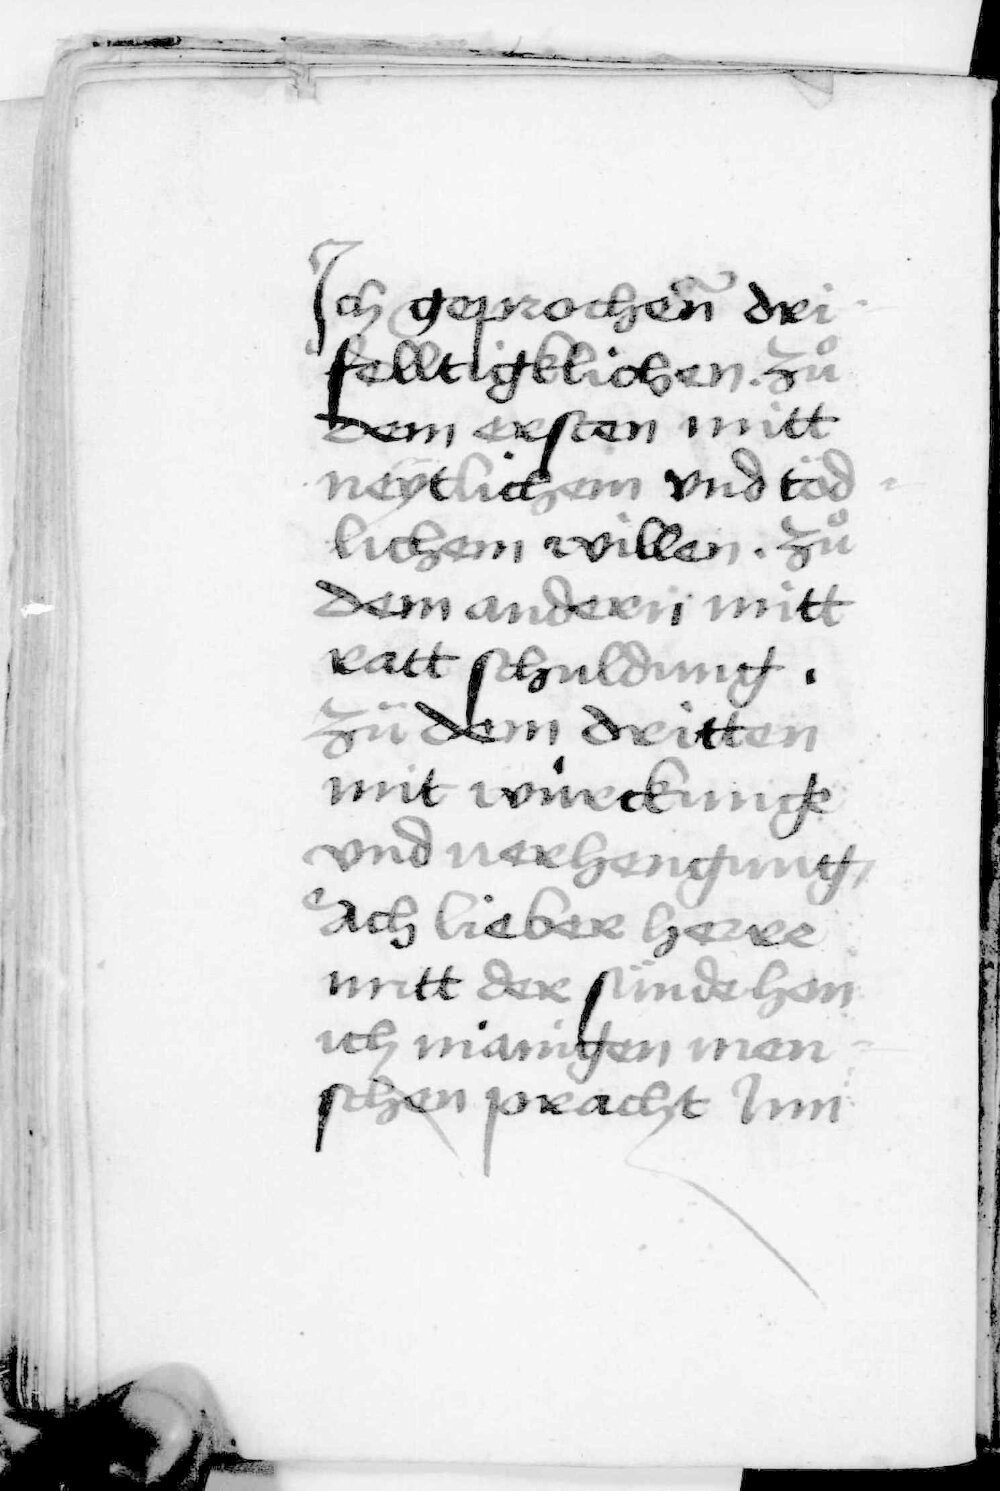 Ich geprochen̄ dri-
felltigklichen. Zů
dem ersten mitt
neÿtlichem vnd töd-
lichem willen. Zů
dem andern mitt
ratt schuldung.
Zü dem dritten
mit würckunge
vnd verhengung,
Ach lieber herre
mitt der sünde hon
ich manigen men-
schen pracht Inn